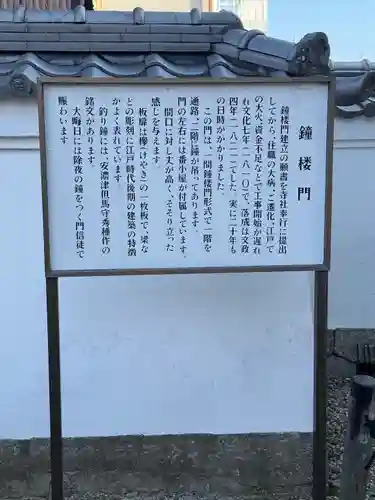 鐘楼門
鐘楼門建立の願書を寺社奉行に提出
してから、住職の大病、ご遷化、江戸で
の大火、資金不足などで工事開始が遅れ
文化七年(一八一〇)で、落成は文政
四年(一八二一)でした。実に二十年も
の日時がかかりました。
この門は、一間鐘楼門形式で一階を
通路、二階に鐘が吊ってあります。
門の左右には番小屋が付属しています。
間口に対し丈が高く、そそり立った
感じを与えます。
板扉は欅(けやき)の一枚板で、梁な
どの彫刻に江戸時代後期の建築の特徴
がよく表れています。
釣り鐘には、安濃津但馬守秀種作の
銘文があります。
大晦日には除夜の鐘をつく門信徒で
賑わいます。